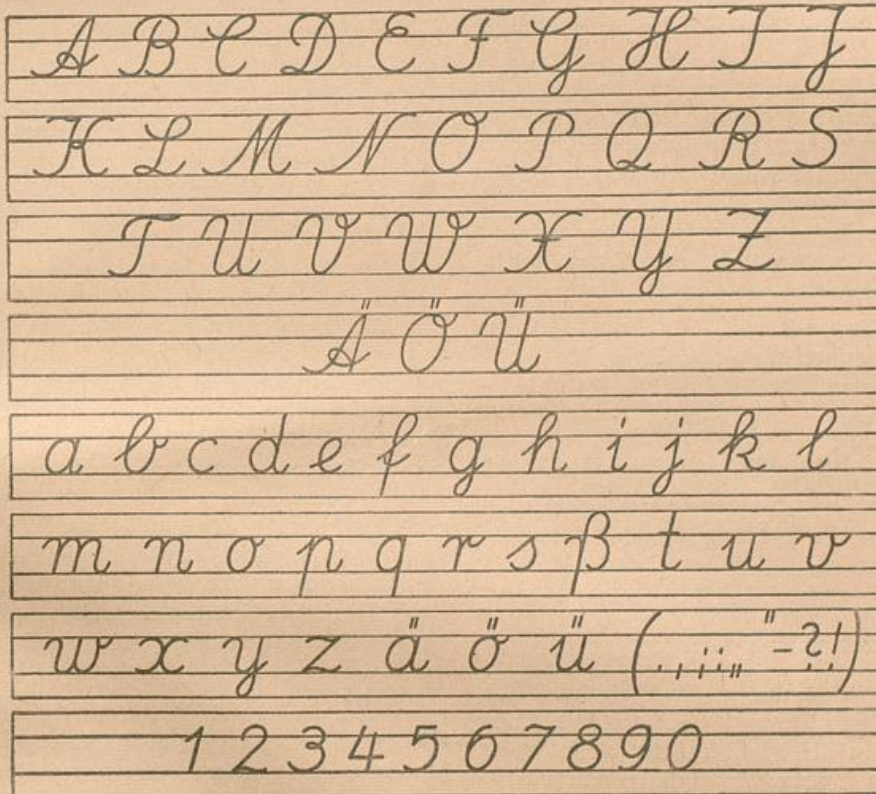 A B C D E F G H I J
K L M N O P Q R S
T U V W X Y Z
Ä Ö Ü
a b c d e f g h i j k l
m n o p q r s ß t u v
w x y z ä ö ü (. , ; : „ " - ? !)
1 2 3 4 5 6 7 8 9 0